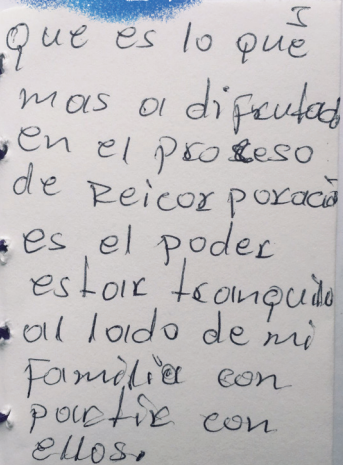 I
que es lo que
mas a difrutad
en el proseso
de Reicorporació
es el poder
estar tranquilo
al lado de mi
Familia con
partir con
ellos.